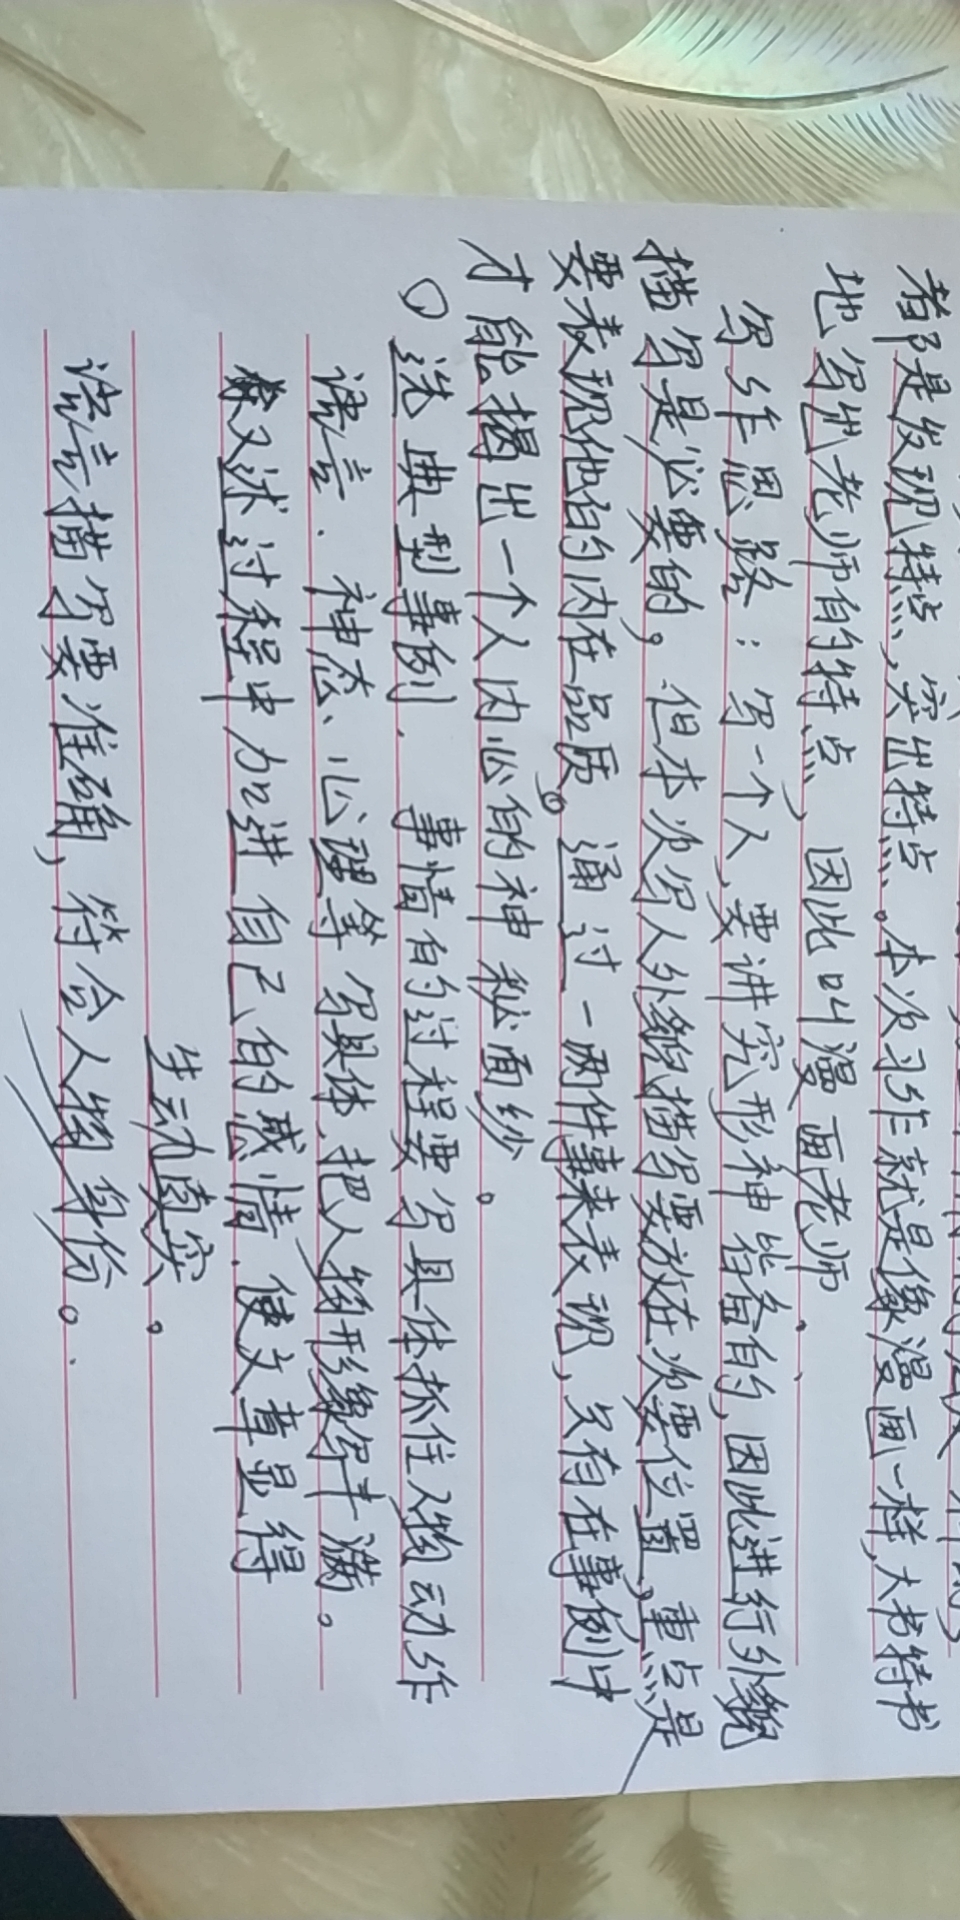 者都是发现特点,突出特点.。本次习作就是像漫画一样,大书特书
地写出老师的特点,因此叫漫画老师.
写作思路:写一个人,要讲究形神皆备的,因此进行外貌
描写是必要的。但本次写人外貌描写要放在次要位置,重点是
要表现他的内在品质。通过一两件事来表现,只有在事例中
才能揭出一个人内心的神秘面纱。
○选典型事例.事情的过程要写具体抓住人物动作
语言.神态、心理等写具体,把人物形象写丰满。
叙述过程中加进自己的感情.使文章显得
生动真实。
语言描写要准确,符合人物身份。